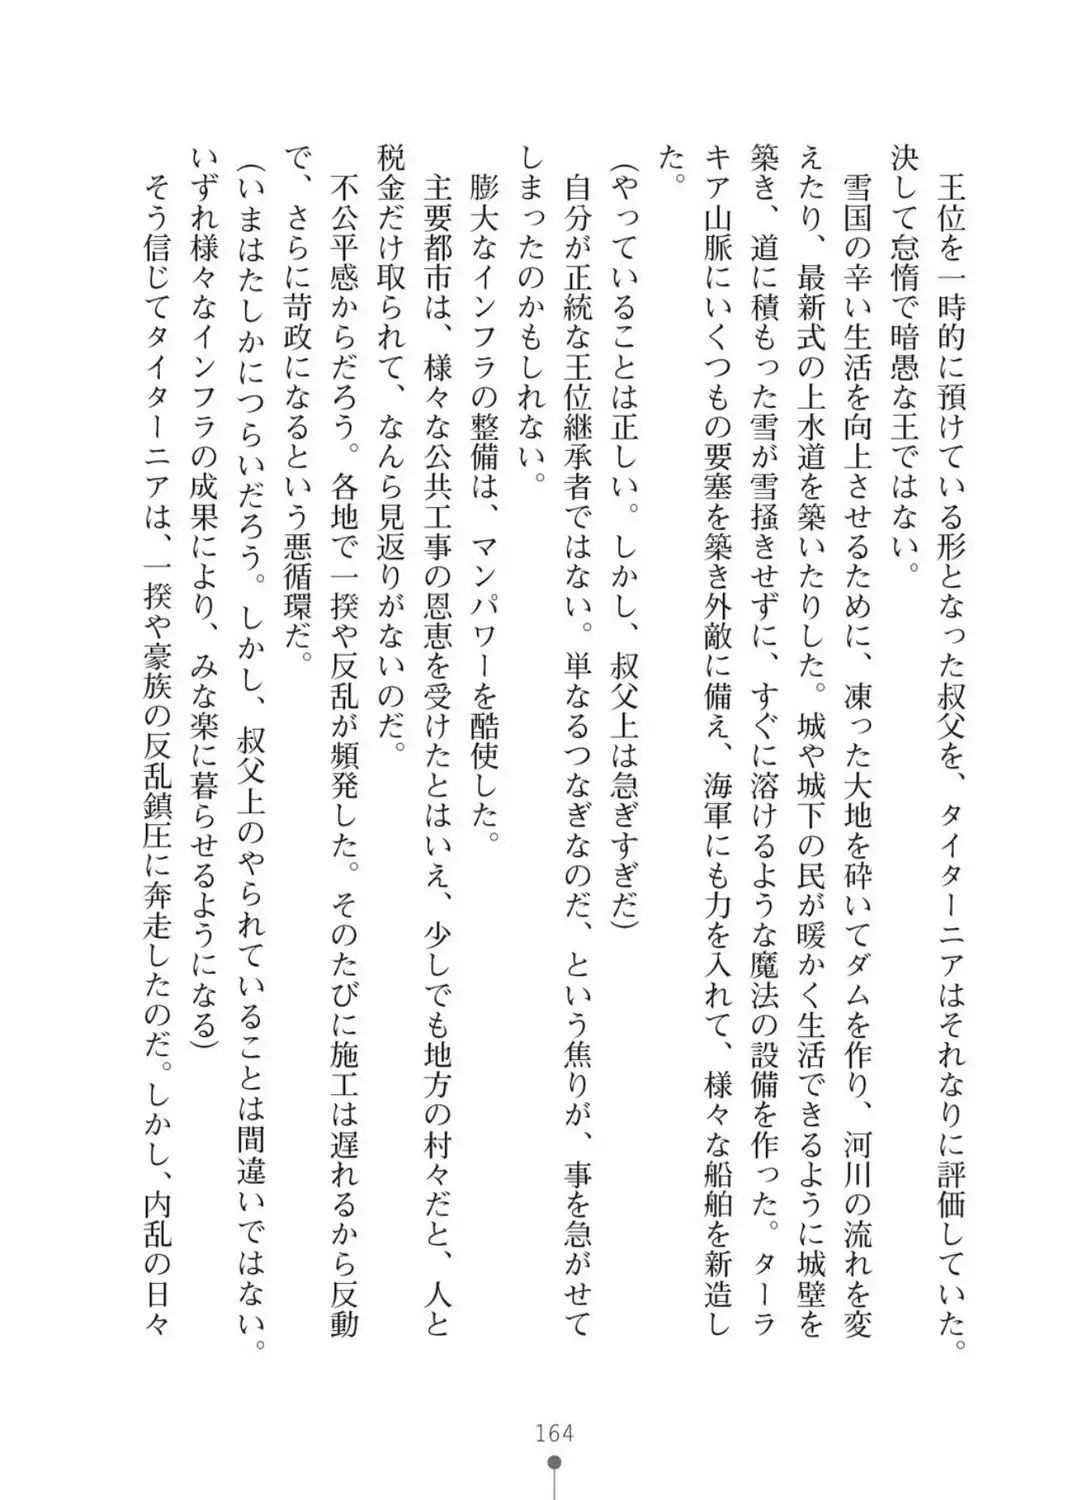 王位を一時的に預けている形となった叔父を、タイターニアはそれなりに評価していた。
決して怠惰で暗愚な王ではない。
雪国の辛い生活を向上させるために、凍った大地を砕いてダムを作り、河川の流れを変
えたり、最新式の上水道を築いたりした。城や城下の民が暖かく生活できるように城壁を
築き、道に積もった雪が雪掻きせずに、すぐに溶けるような魔法の設備を作った。ターラ
キア山脈にいくつもの要塞を築き外敵に備え、海軍にも力を入れて、様々な船舶を新造し
た。
(やっていることは正しい。しかし、叔父上は急ぎすぎだ)
自分が正統な王位継承者ではない。単なるつなぎなのだ、という焦りが、事を急がせて
しまったのかもしれない。
膨大なインフラの整備は、マンパワーを酷使した。
主要都市は、様々な公共工事の恩恵を受けたとはいえ、少しでも地方の村々だと、人と
税金だけ取られて、なんら見返りがないのだ。
不公平感からだろう。各地で一揆や反乱が頻発した。そのたびに施工は遅れるから反動
で、さらに苛政になるという悪循環だ。
(いまはたしかにつらいだろう。しかし、叔父上のやられていることは間違いではない。
いずれ様々なインフラの成果により、みな楽に暮らせるようになる)
そう信じてタイターニアは、一揆や豪族の反乱鎮圧に奔走したのだ。しかし、内乱の日々
164